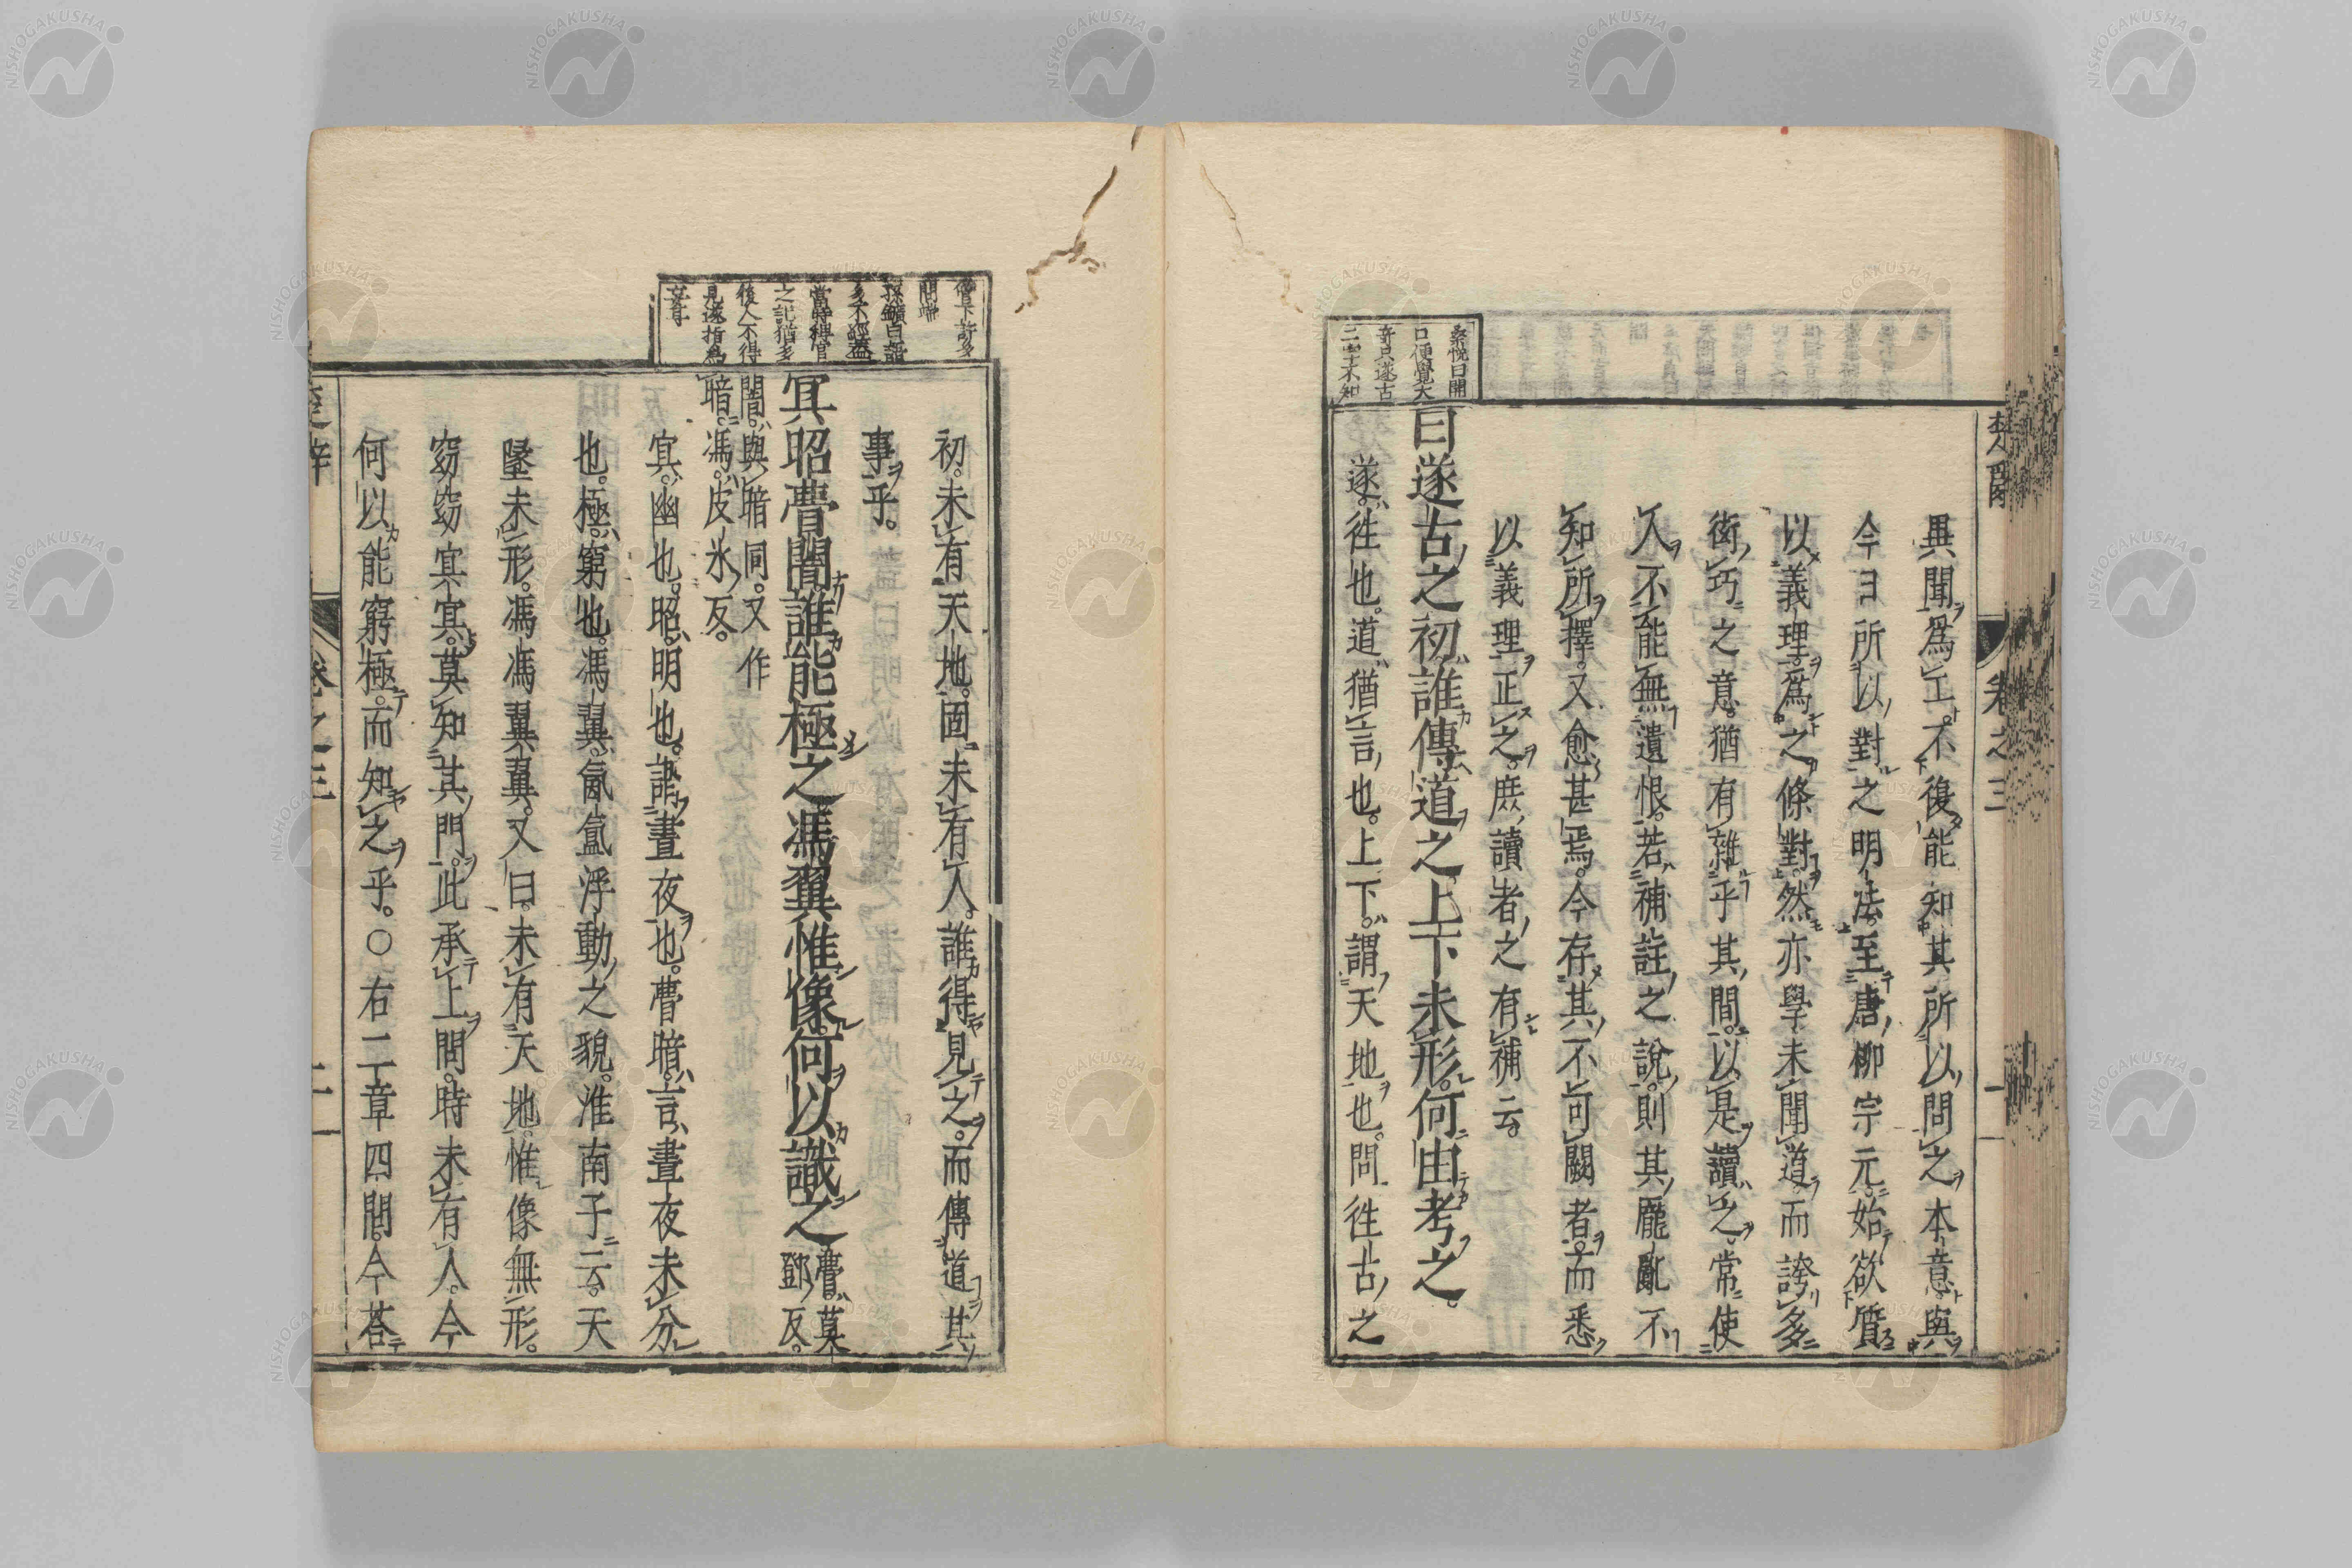 楚辭
卷之三
一
異聞爲工。不復能知其所以問之本意。與
今日所以對之明法。至唐柳宗元。始欲質
以義理。爲之條對。然亦學未聞道。而誇多
衒巧之意。猶有雜乎其間。以是讀之。常使
人不能無遺恨。若補註之說。則其厖亂不
知所擇。又愈甚焉。今存其不可闕者。而悉
以義理正之。庶讀者之有補云。
曰遂古之初。誰傳道之。上下未形。何由考之。
遂。徃也。道。猶言也。上下。謂天地也。問徃古之
桑悅曰開
口便覺大
奇只遂古
二字不知
初。未有天地。固未有人。誰得見之。而傳道其
事乎。
冥昭瞢闇。誰能極之。馮翼惟像。何以識之。
瞢。莫
鄧反。
闇。與暗同。又作
暗。馮。皮氷反。
冥。幽也。昭。明也。謂晝夜也。瞢暗。言晝夜未分
也。極。窮也。馮翼。氤氳浮動之貌。淮南子云。天
墬未形。馮馮翼翼。又曰。未有天地。惟像無形。
窈窈冥冥。莫知其門。此承上問。時未有人。今
何以能窮極。而知之乎。〇右二章四問。今荅
問端
多不經蓋
當時稗官
之記猶多
後人不得
見遂指爲
楚辭
卷之三
二
NISHOGAKUSHA